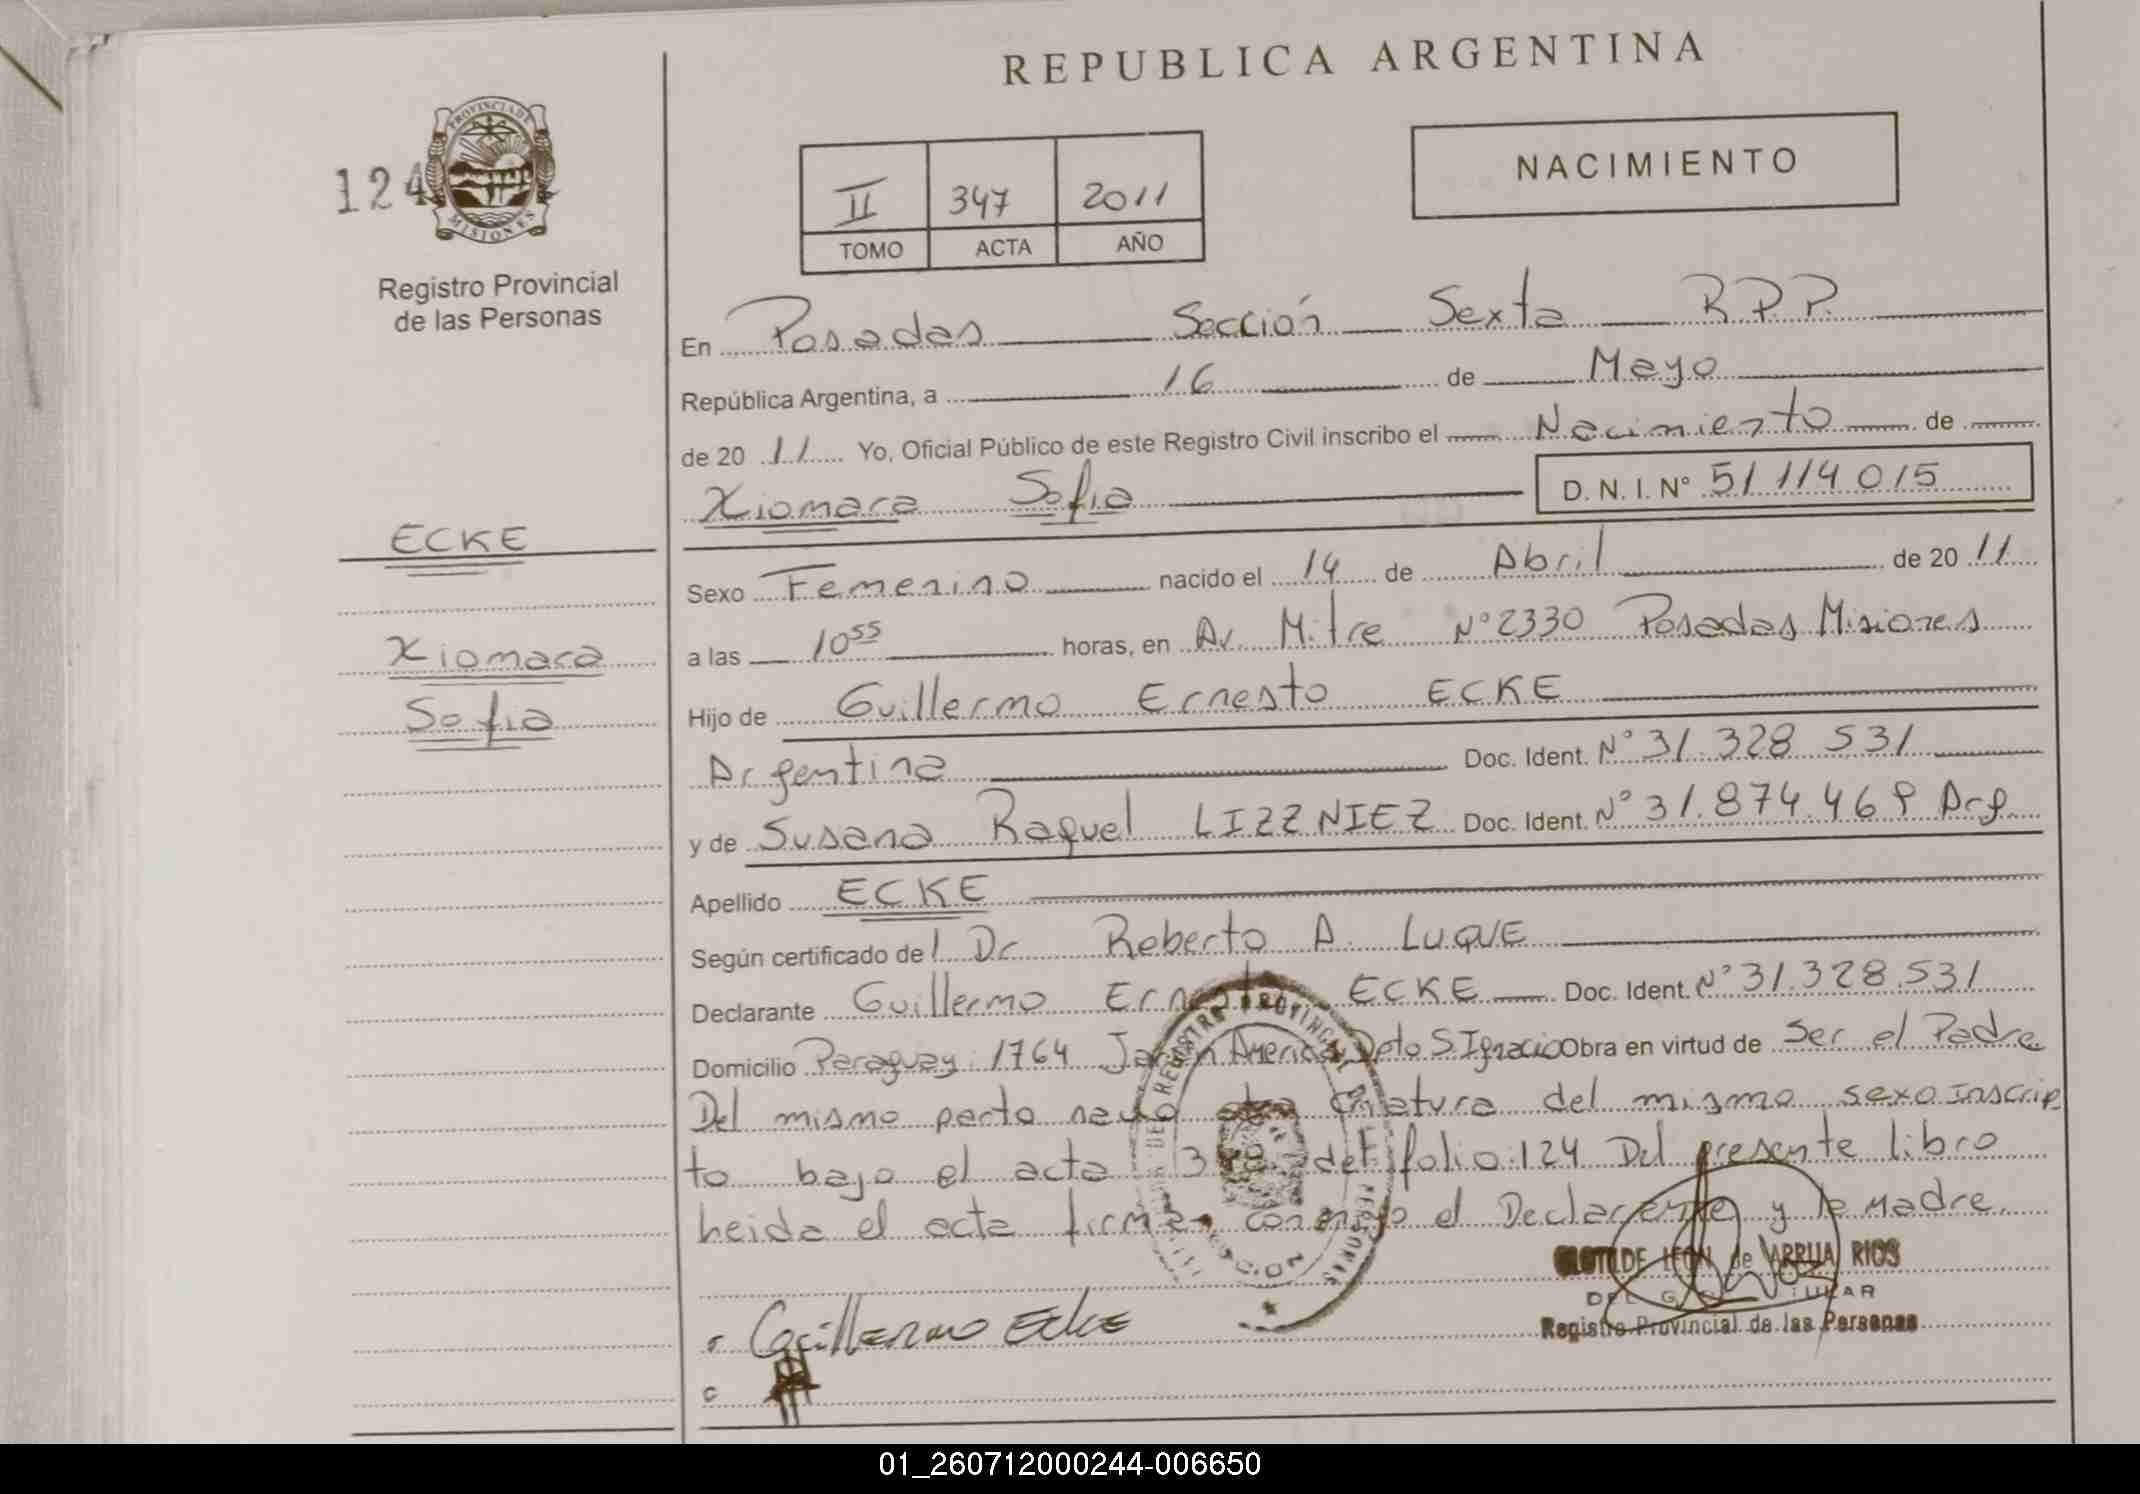 REPUBLICA ARGENTINA
124
PROVINCIA DE MISIONES
Registro Provincial
de las Personas
II 347 2011
TOMO ACTA AÑO
NACIMIENTO
En Posadas Sección Sexta R.P.P.
República Argentina, a 16 de Mayo
de 20 11 Yo, Oficial Público de este Registro Civil inscribo el Nacimiento de
Xiomara Sofia D. N. I. N° 51 114 015
ECKE
Xiomara
Sofia
Sexo Femenino nacido el 14 de Abril de 20 11
a las 10 55 horas, en Av. Mitre N° 2330 Posadas Misiones
Hijo de Guillermo Ernesto ECKE
Argentina Doc. Ident. N° 31.328 531
y de Susana Raquel LIZZNIEZ Doc. Ident. N° 31.874.469 Arg.
Apellido ECKE
Según certificado del Dr Roberto A. LUQUE
Declarante Guillermo Ernesto ECKE Doc. Ident. N° 31.328.531
Domicilio Paraguay 1764 Jardin America Dpto S. Ignacio Obra en virtud de Ser el Padre
Del mismo parto nació otra criatura del mismo sexo Inscrip
to bajo el acta del folio 124 Del presente libro
heida el acta firman conmigo el Declarante y la madre
CLOTILDE LEON de ARRUA RIOS
TITULAR
Registro Provincial de las Personas
Guillermo Ecke
01_260712000244-006650